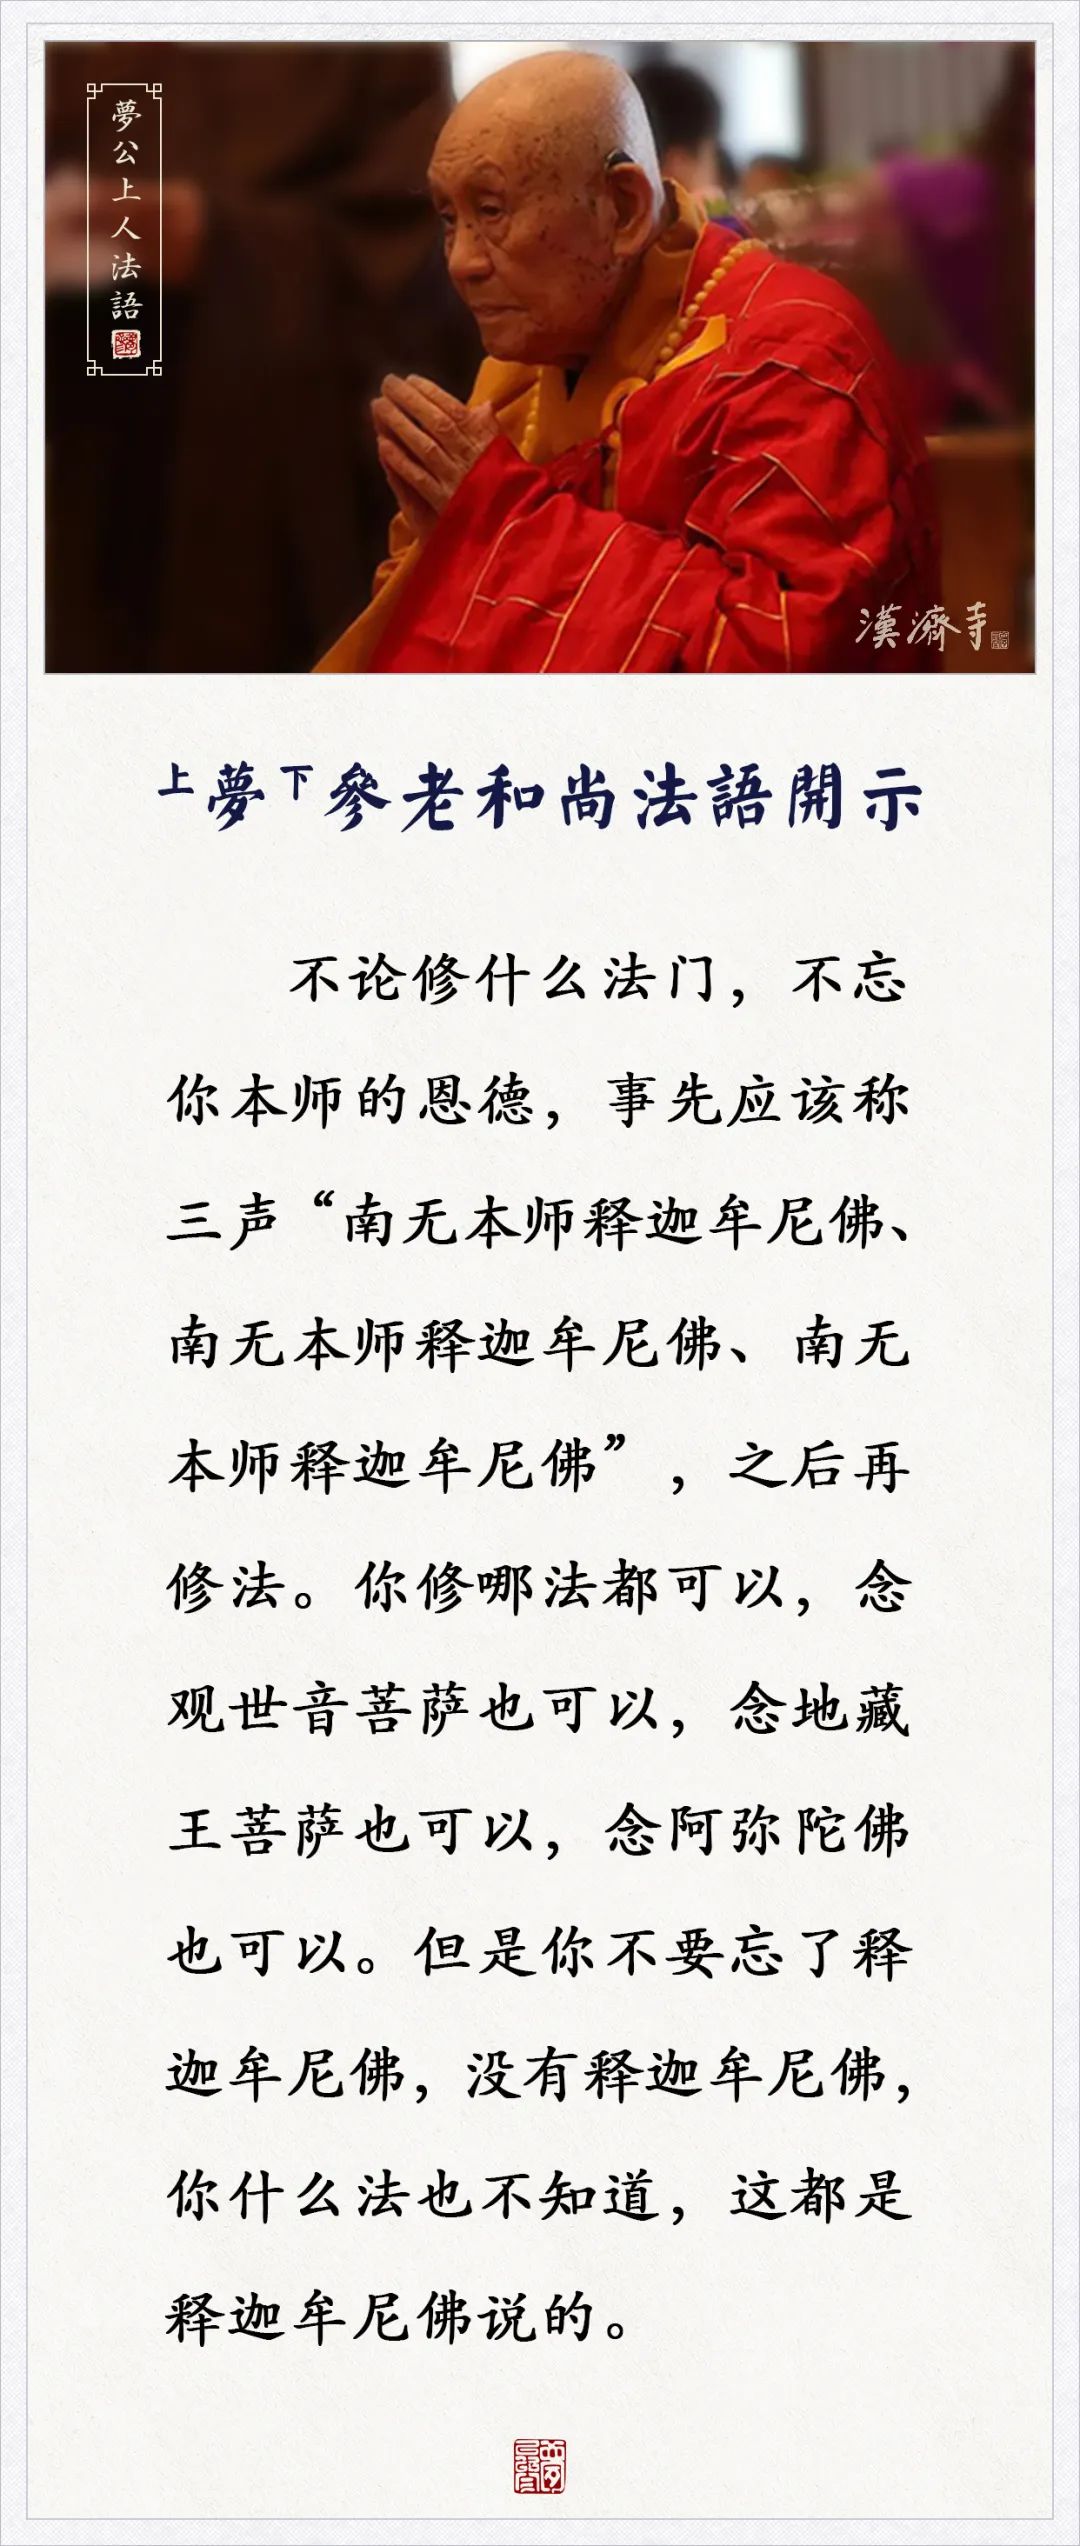 夢公上人法語
漢濟寺
上夢下參老和尚法語開示
不论修什么法门，不忘
你本师的恩德，事先应该称
三声“南无本师释迦牟尼佛、
南无本师释迦牟尼佛、南无
本师释迦牟尼佛”，之后再
修法。你修哪法都可以，念
观世音菩萨也可以，念地藏
王菩萨也可以，念阿弥陀佛
也可以。但是你不要忘了释
迦牟尼佛，没有释迦牟尼佛，
你什么法也不知道，这都是
释迦牟尼佛说的。